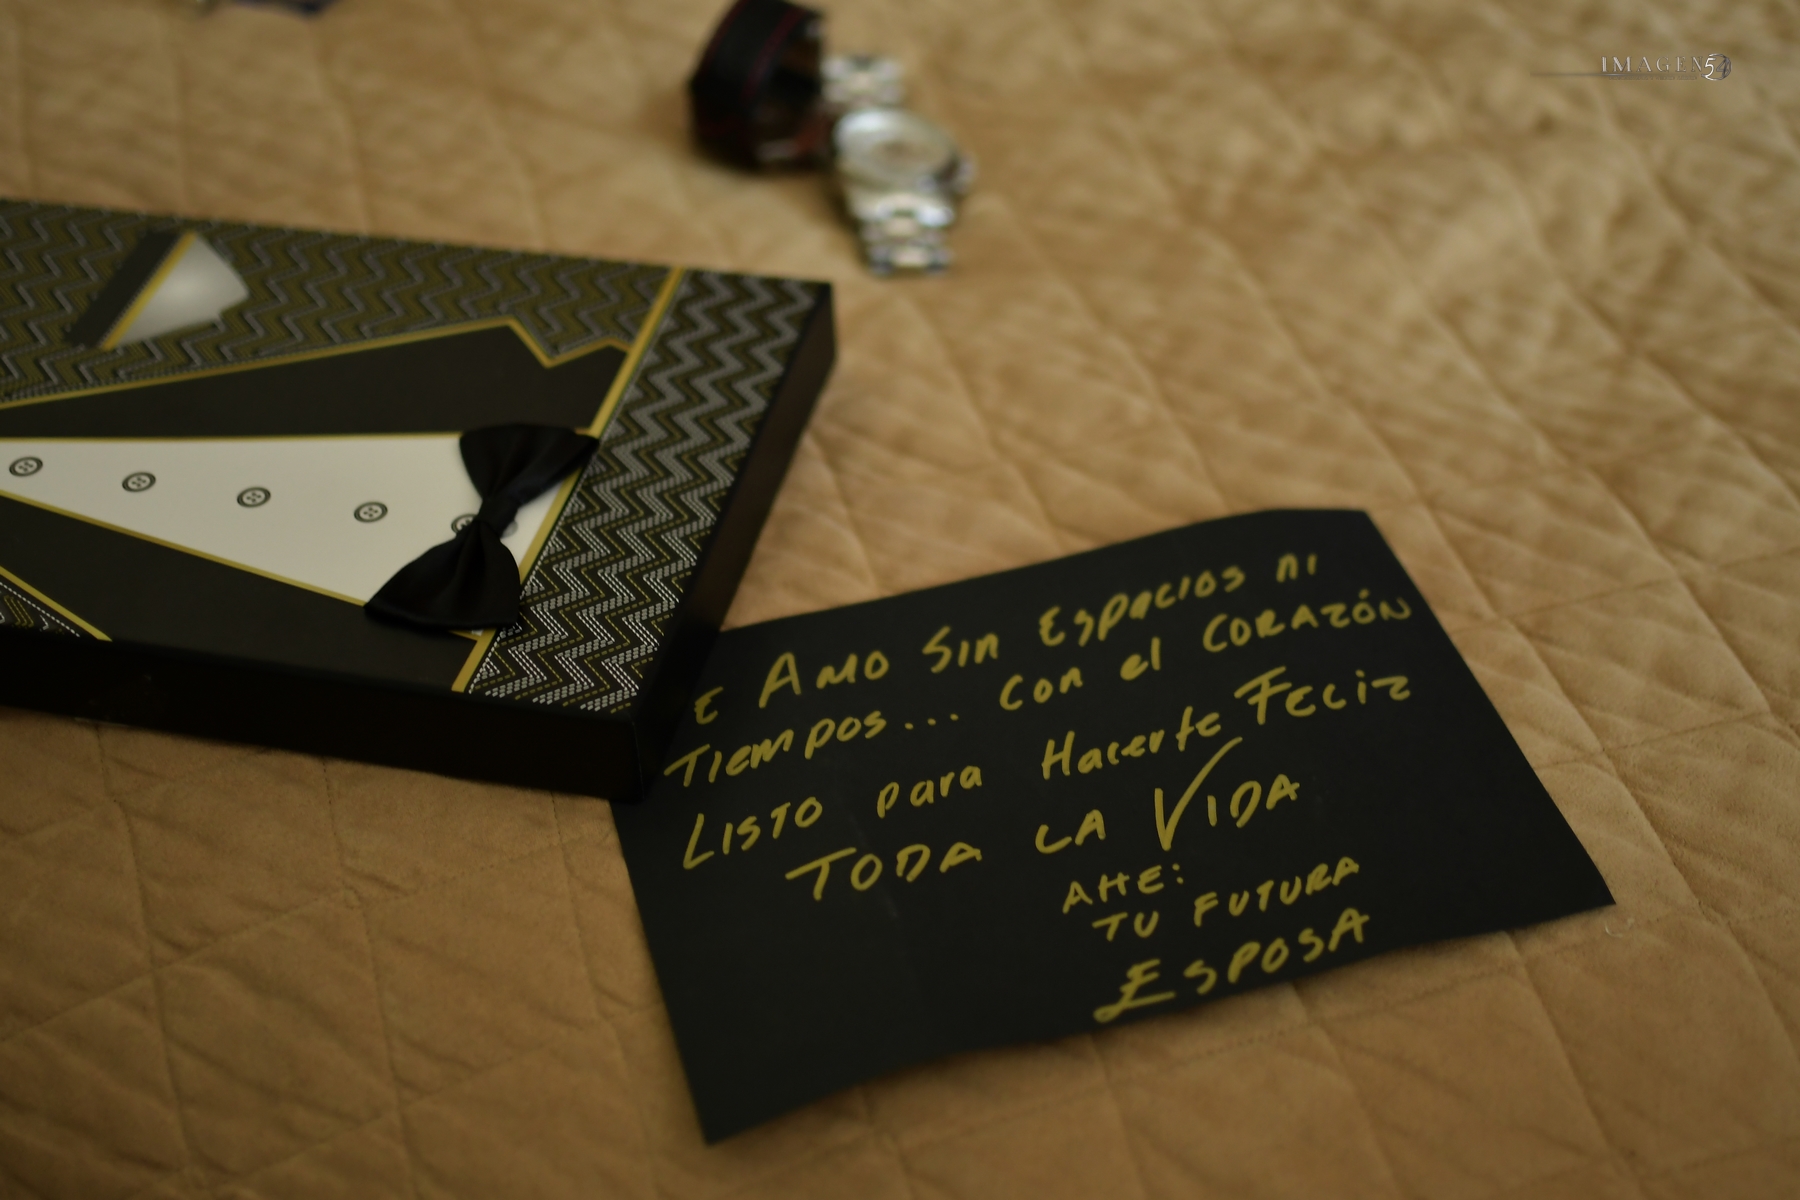 IMAGEN 54
E AMO SIN ESPACIOS NI
TIEMPOS... CON el CORAZÓN
LISTO para Hacerte FELIZ
TODA LA VIDA
AHE:
TU FUTURA
ESPOSA